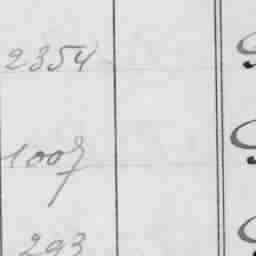 2354
1007
293